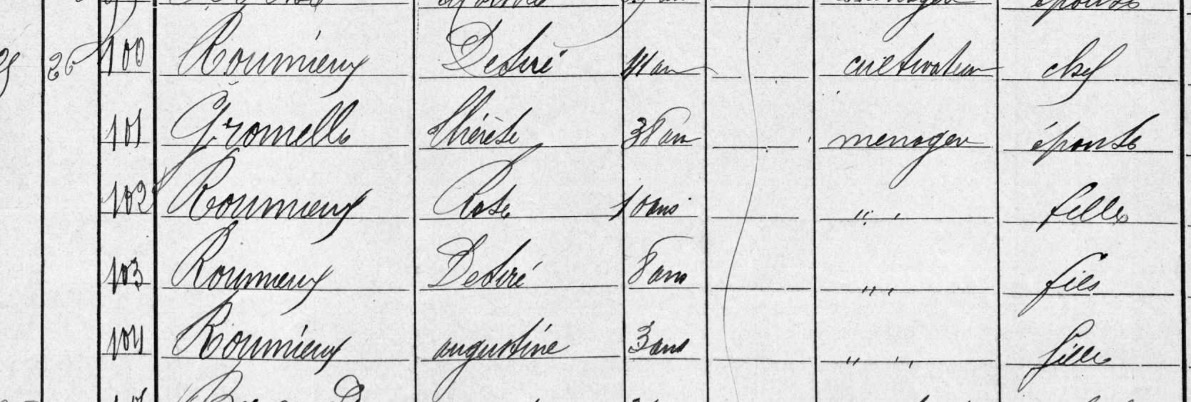 épouse
26 100 Roumieux Desiré 41 an cultivateur chef
101 Gromelle thérèse 38 an menagere épouse
102 Roumieux Rose 10 ans " " fille
103 Roumieux Desiré 8 ans " " fils
104 Roumieux augustine 3 ans " " fille